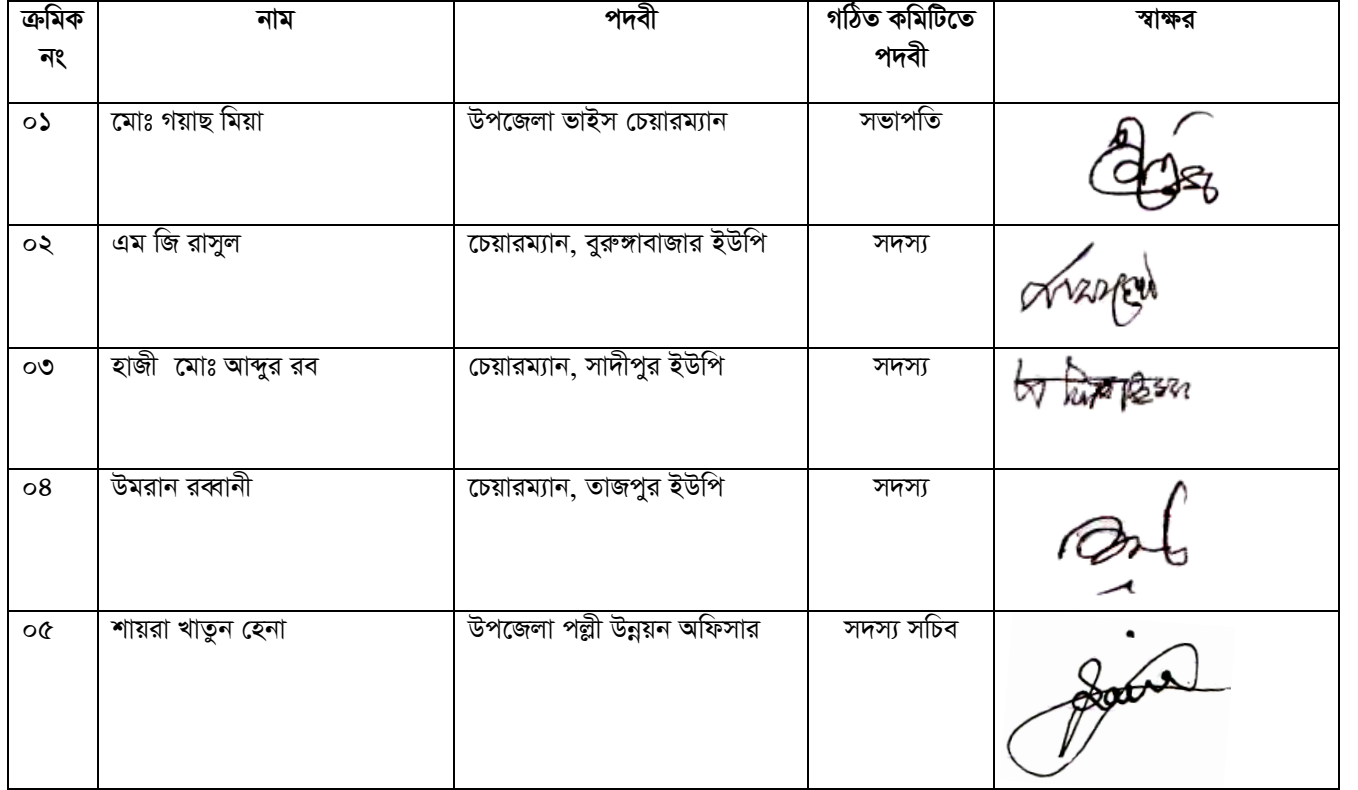 ক্রমিক নং নাম পদবী গঠিত কমিটিতে পদবী স্বাক্ষর
০১ মোঃ গয়াছ মিয়া উপজেলা ভাইস চেয়ারম্যান সভাপতি
০২ এম জি রাসুল চেয়ারম্যান, বুরুঙ্গাবাজার ইউপি সদস্য
০৩ হাজী মোঃ আব্দুর রব চেয়ারম্যান, সাদীপুর ইউপি সদস্য
০৪ উমরান রব্বানী চেয়ারম্যান, তাজপুর ইউপি সদস্য
০৫ শায়রা খাতুন হেনা উপজেলা পল্লী উন্নয়ন অফিসার সদস্য সচিব